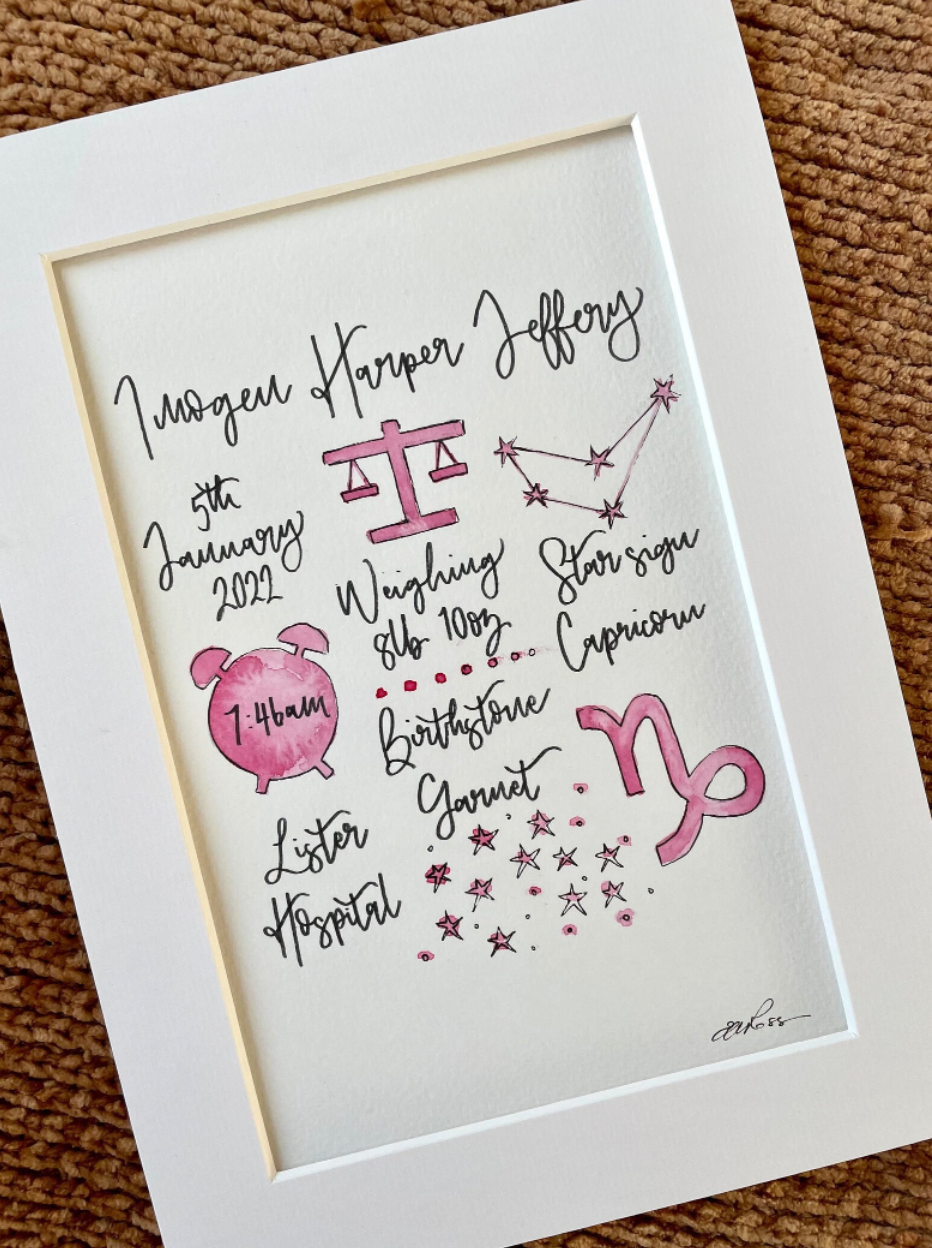 Imogen Harper Jeffery
5th
January
2022
Weighing
8lb 10oz
Star sign
Capricorn
1:46am
Birthstone
Garnet
Lister
Hospital